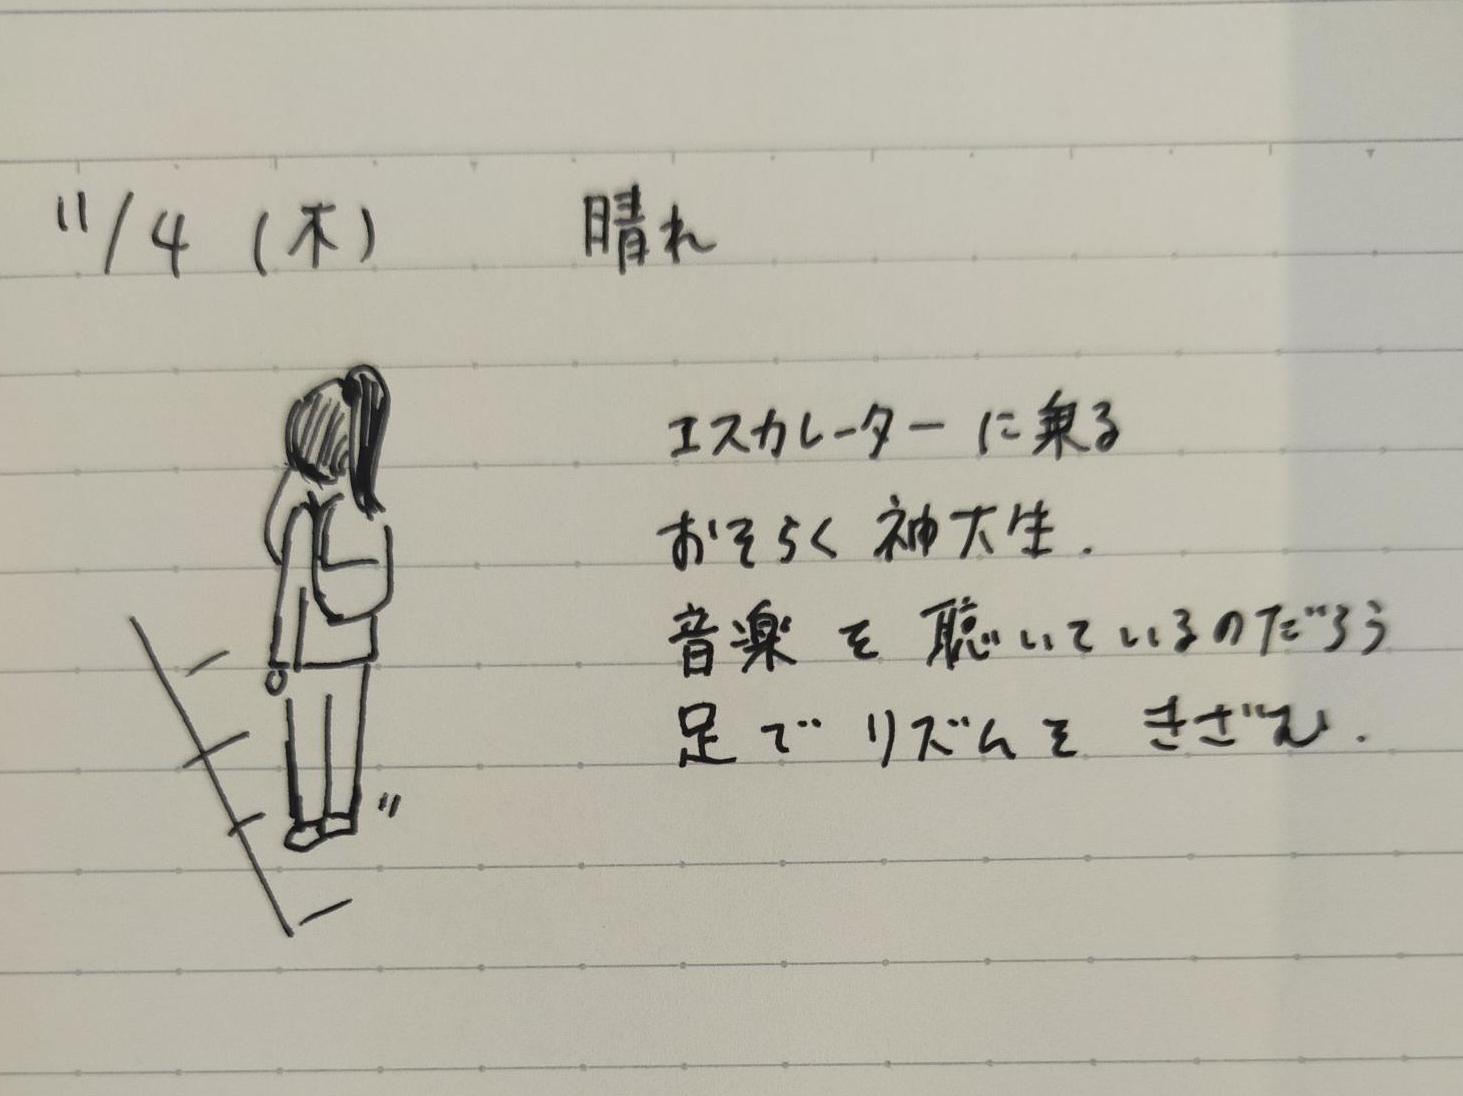 11/4 (木) 晴れ
エスカレーターに乗る
おそらく神大生.
音楽を聴いているのだろう
足でリズムをきざむ.